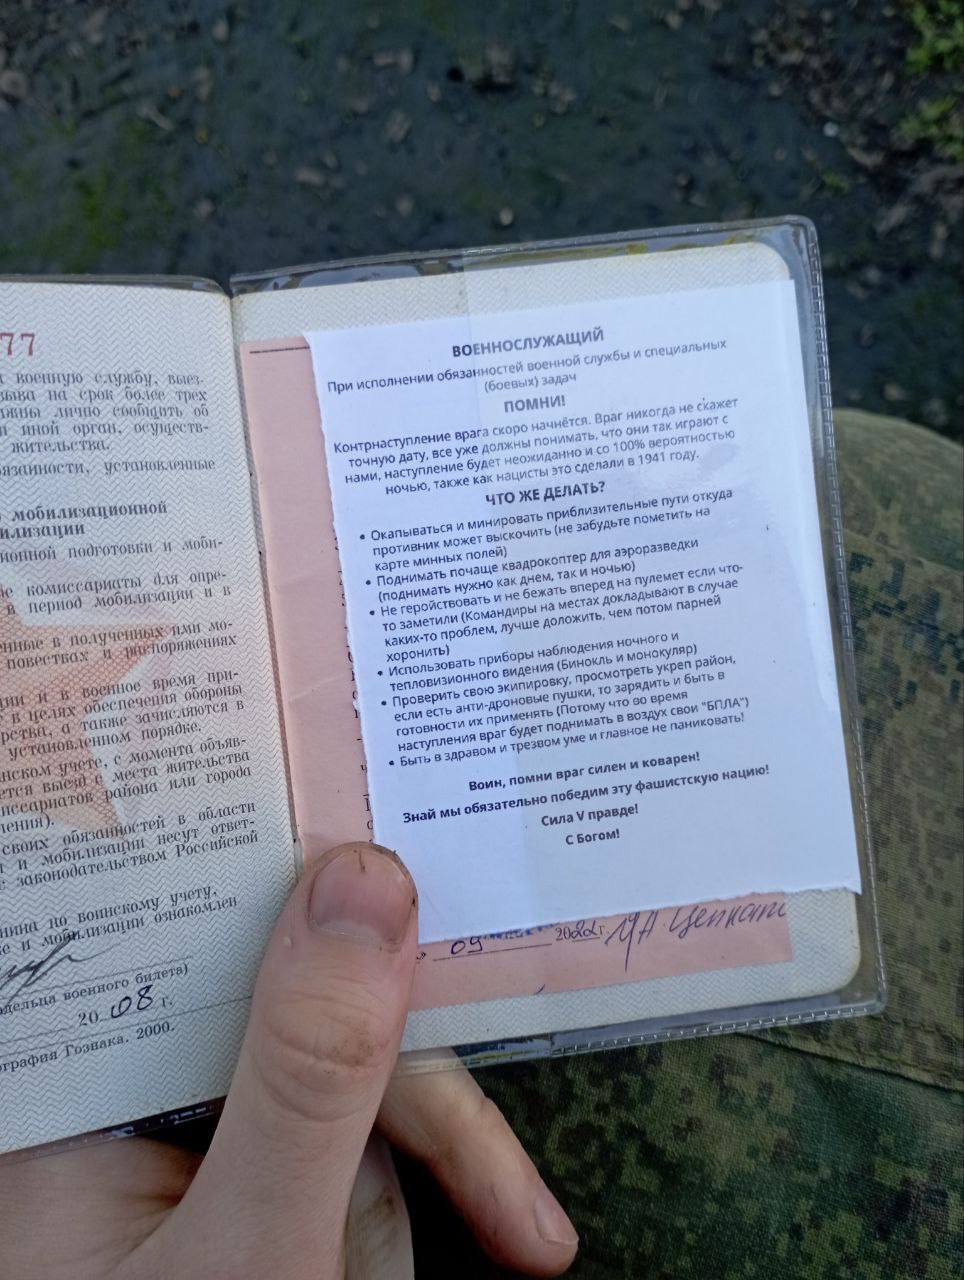 77
военную службу, выез-
ыва на срок более трех
ляны лично сообщить об
и иной орган, осуществ-
жительства.
бязанности, установленные
о мобилизационной
илизации
ионной подготовки и моби-
ые комиссариаты для опре-
в период мобилизации и в
енные в полученных ими мо-
повестках и распоряжениях
ции и в военное время при-
в целях обеспечения обороны
арства, а также зачисляются в
установленном порядке.
нском учете, с момента объяв-
ется выезд с места жительства
иссариатов района или города
ления).
своих обязанностей в области
и и мобилизации несут ответ-
с законодательством Российской
нина по воинскому учету,
ке и мобилизации ознакомлен
адельца военного билета)
20 08 г.
ография Гознака. 2000.
ВОЕННОСЛУЖАЩИЙ
При исполнении обязанностей военной службы и специальных
(боевых) задач
ПОМНИ!
Контрнаступление врага скоро начнётся. Враг никогда не скажет
точную дату, все уже должны понимать, что они так играют с
нами, наступление будет неожиданно и со 100% вероятностью
ночью, также как нацисты это сделали в 1941 году.
ЧТО ЖЕ ДЕЛАТЬ?
• Окапываться и минировать приблизительные пути откуда
противник может выскочить (не забудьте пометить на
карте минных полей)
• Поднимать почаще квадрокоптер для аэроразведки
(поднимать нужно как днем, так и ночью)
• Не геройствовать и не бежать вперед на пулемет если что-
то заметили (Командиры на местах докладывают в случае
каких-то проблем, лучше доложить, чем потом парней
хоронить)
• Использовать приборы наблюдения ночного и
тепловизионного видения (Бинокль и монокуляр)
• Проверить свою экипировку, просмотреть укреп район,
если есть анти-дроновые пушки, то зарядить и быть в
готовности их применять (Потому что во время
наступления враг будет поднимать в воздух свои "БПЛА")
• Быть в здравом и трезвом уме и главное не паниковать!
Воин, помни враг силен и коварен!
Знай мы обязательно победим эту фашистскую нацию!
Сила V правде!
С Богом!
» 09 2022 г.